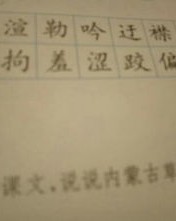 渲 勒 吟 迂 襟
拘 羞 涩 跤 偏
课文，说说内蒙古草